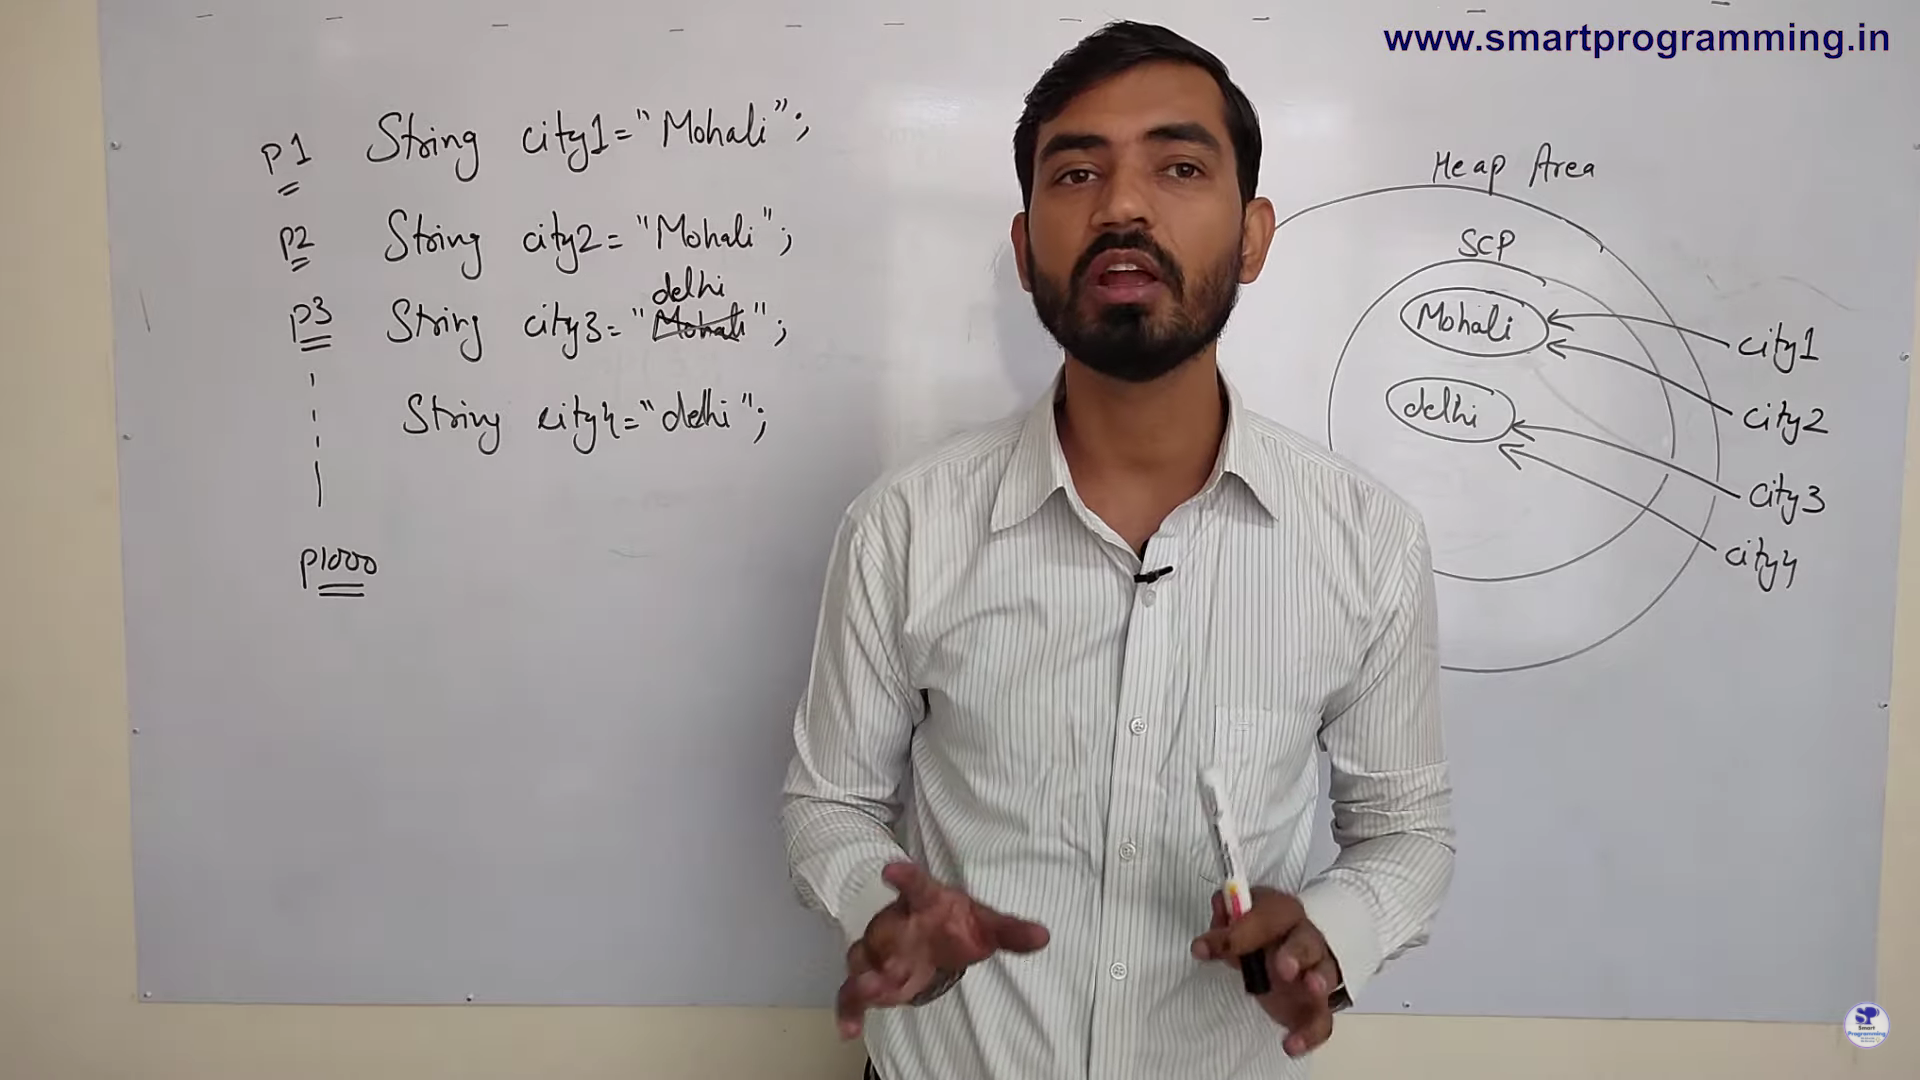 www.smartprogramming.in
p1 String city1="Mohali";
p2 String city2="Mohali";
delhi
p3 String city3="Mohali";
String city4="delhi";
p1000
Heap Area
SCP
Mohali
delhi
city1
city2
city3
city4
SP
Smart
Programming